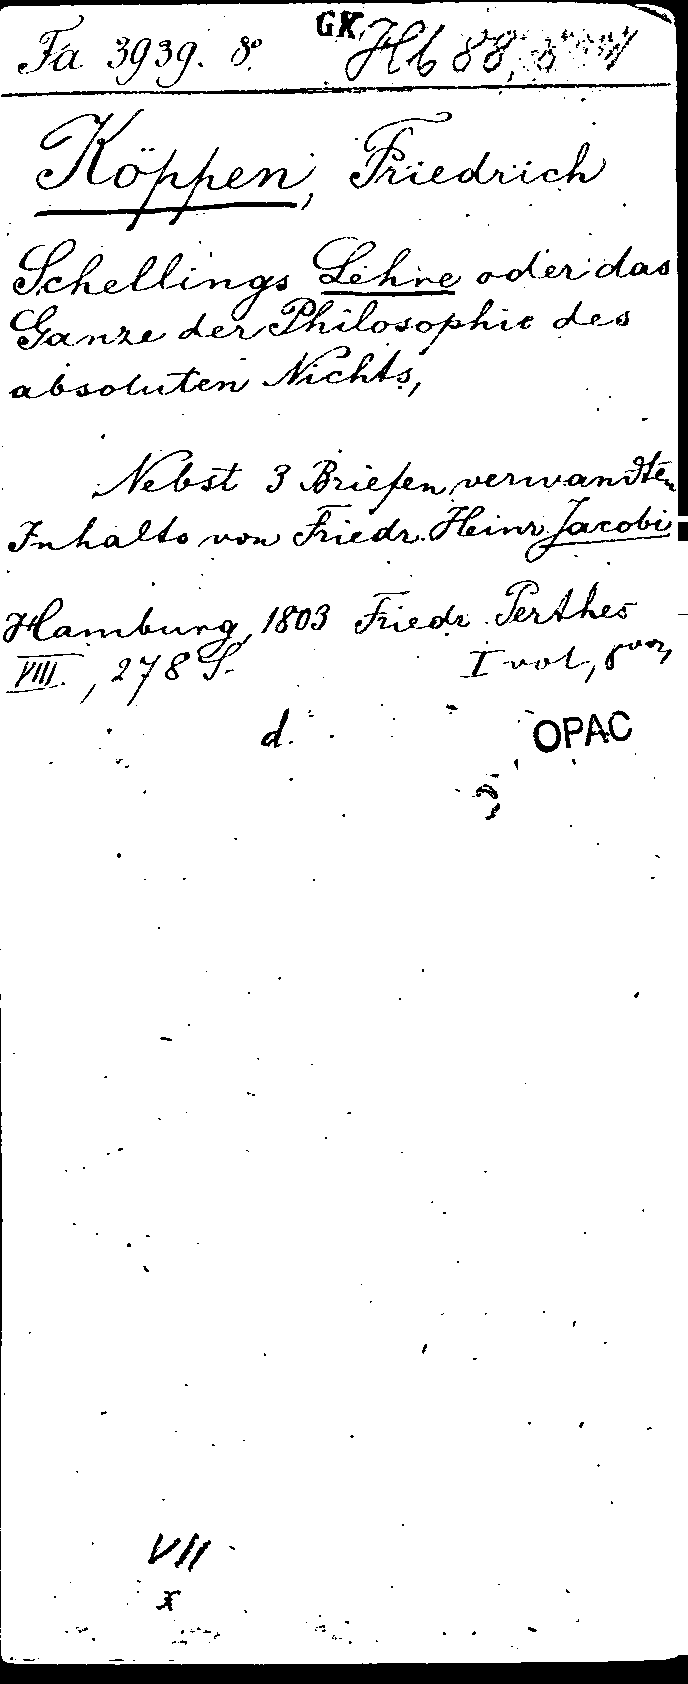 Fa 3939. 8°. GK Hb 88,
Köppen, Friedrich
Schellings Lehre oder das
Ganze der Philosophie des
absoluten Nichts,
Nebst 3 Briefen verwandten
Inhalts von Friedr. Heinr. Jacobi
Hamburg, 1803 Friedr. Perthes
VIII, 278 S. I vol, 8vo,
d. OPAC
VII
x